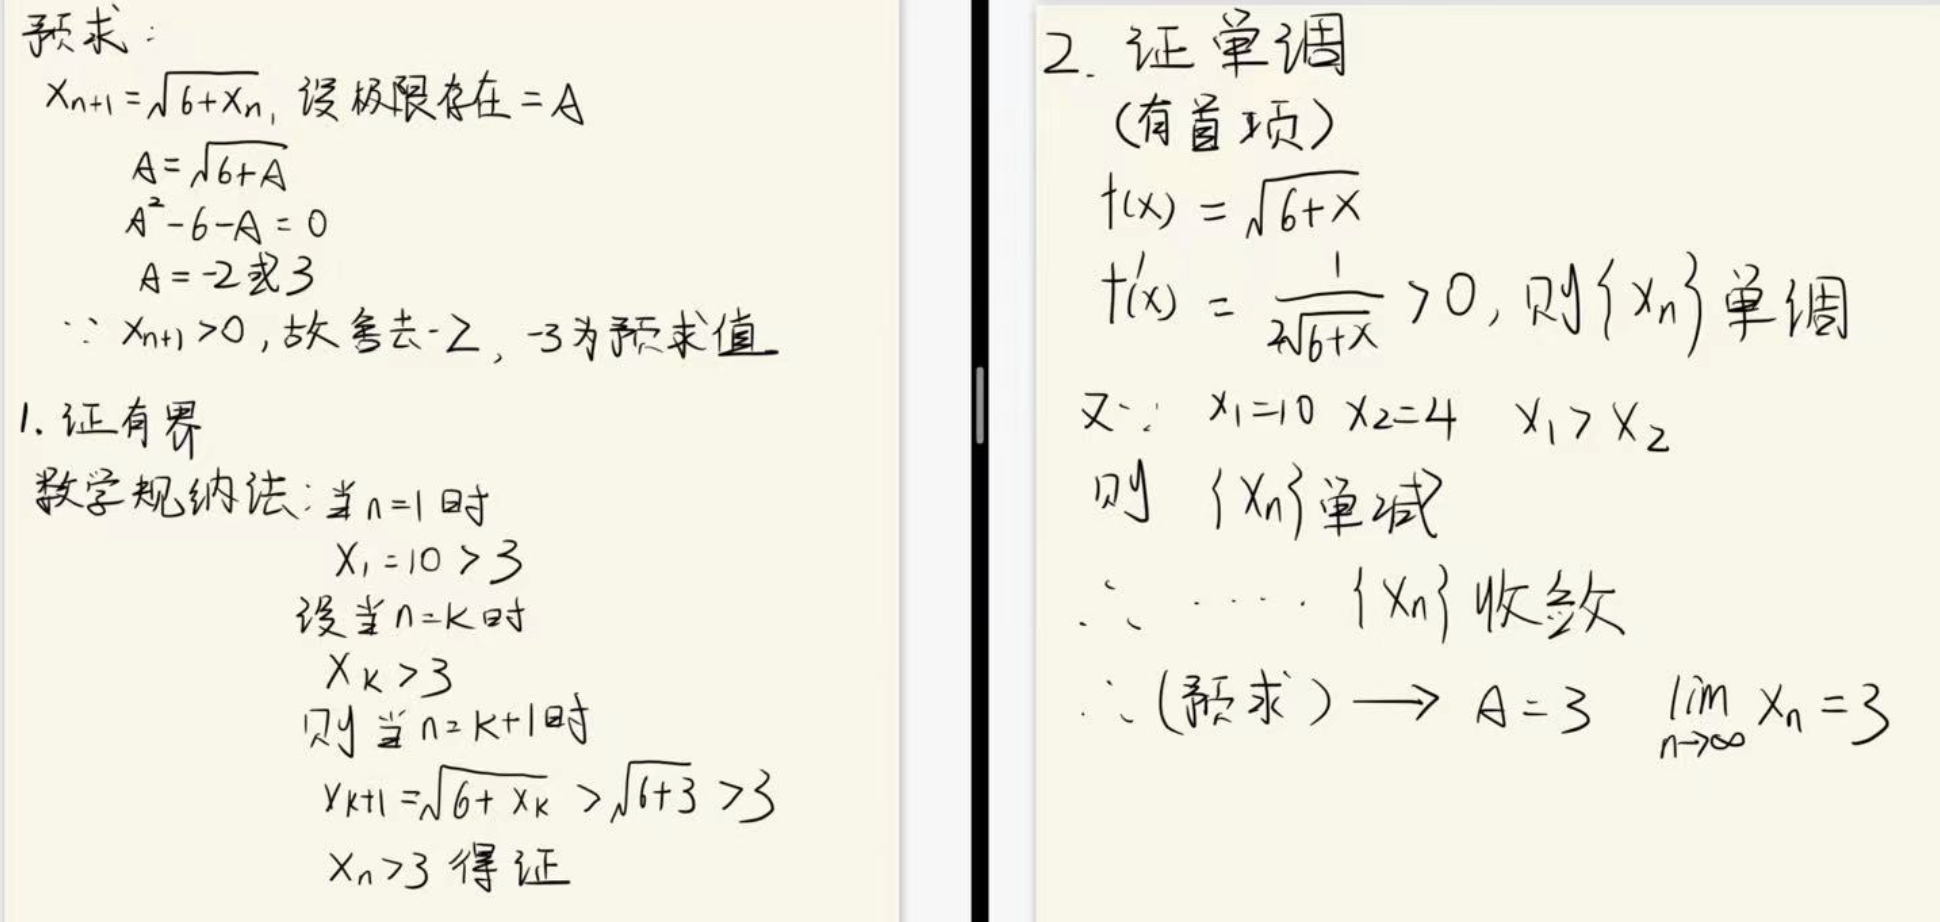 预求:
Xn+1=√6+Xn, 设极限存在=A
A=√6+A
A²-6-A=0
A=-2或3
∵ Xn+1>0,故舍去-2, -3为预求值
1. 证有界
数学规纳法:当n=1时
X1=10>3
设当n=K时
XK>3
则当n=K+1时
XK+1=√6+XK >√6+3 >3
Xn>3 得证
2. 证单调
(有首项)
f(x) = √6+X
f'(x) = 1/2√6+X >0, 则{Xn}单调
又∵ X1=10 X2=4 X1>X2
则 {Xn}单减
∴ ···· {Xn}收敛
∴(预求)→ A=3 lim n→∞ Xn=3